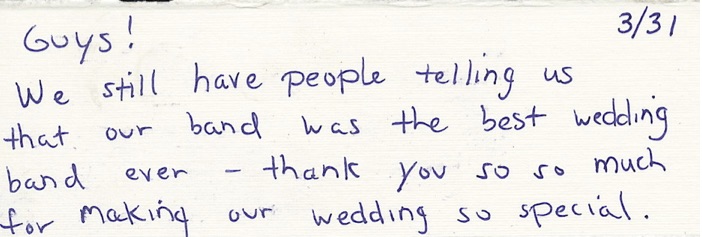 Guys! 3/31
We still have people telling us
that our band was the best wedding
band ever - thank you so so much
for making our wedding so special.